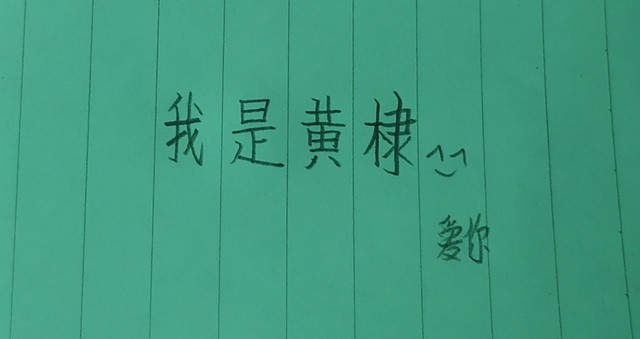 我是黄棣
爱你